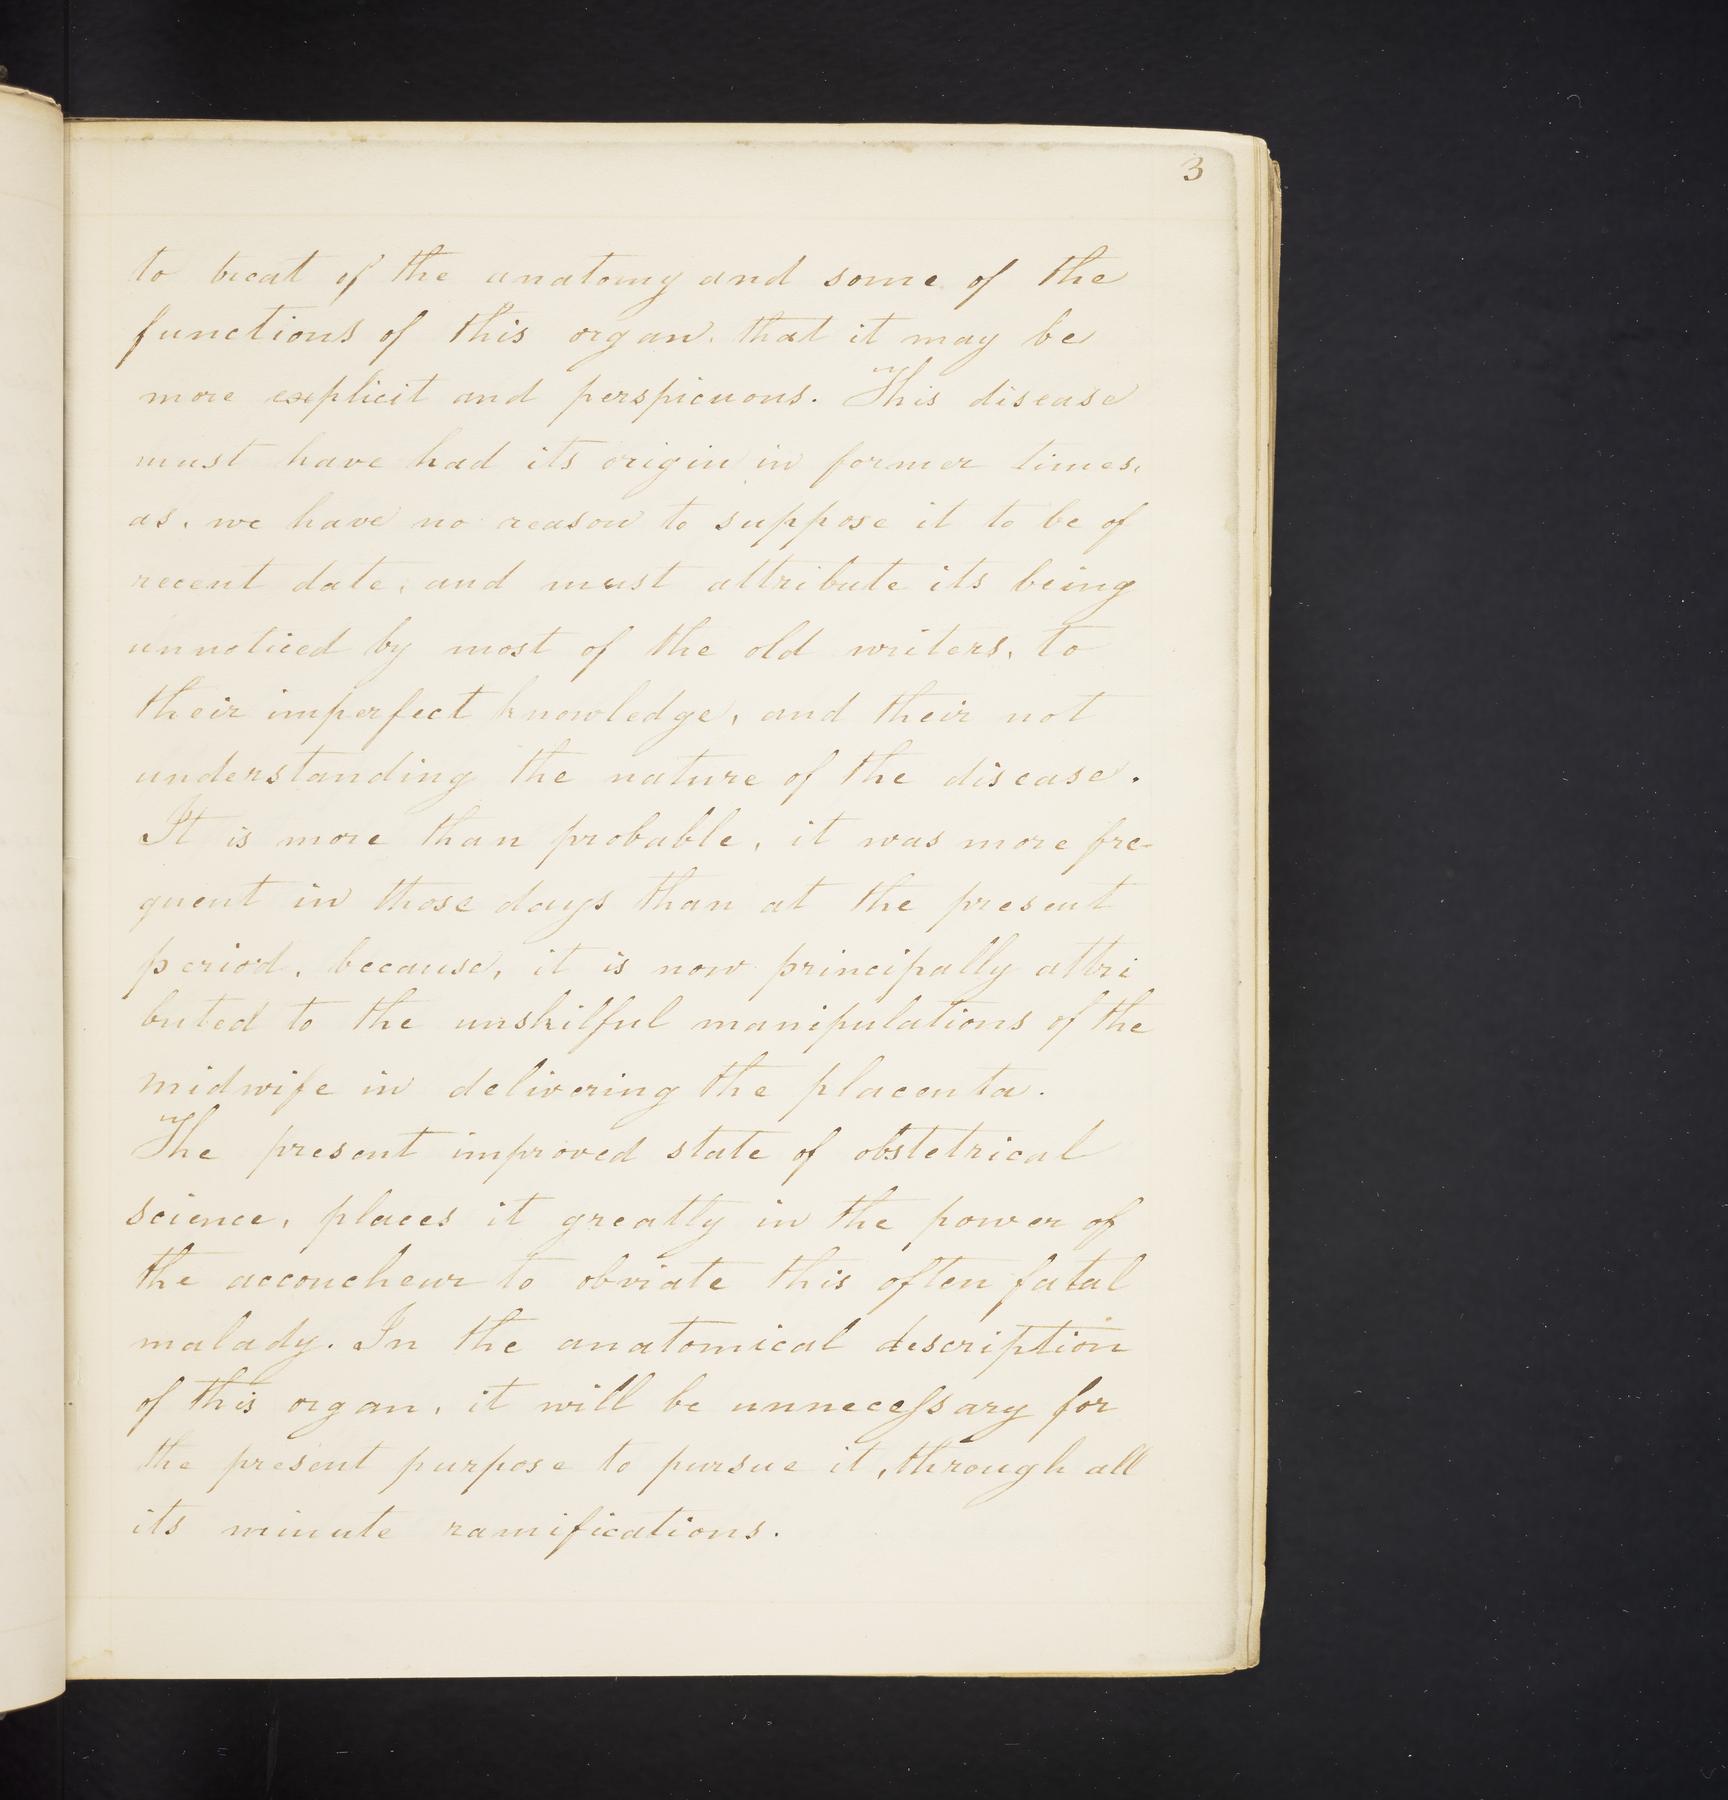 3
to treat of the anatomy and some of the
functions of this organ, that it may be
more explicit and perspicuous. This disease
must have had its origin in former times,
as, we have no reason to suppose it to be of
recent date, and must attribute its being
unnoticed by most of the old writers, to
their imperfect knowledge, and their not
understanding the nature of the disease.
It is more than probable, it was more fre-
quent in those days than at the present
period, because, it is now principally attri
buted to the unskilful manipulations of the
midwife in delivering the placenta.
The present improved state of obstetrical
science, places it greatly in the power of
the accoucheur to obviate this often fatal
malady. In the anatomical description
of this organ, it will be unnecessary for
the present purpose to pursue it, through all
its minute ramifications.